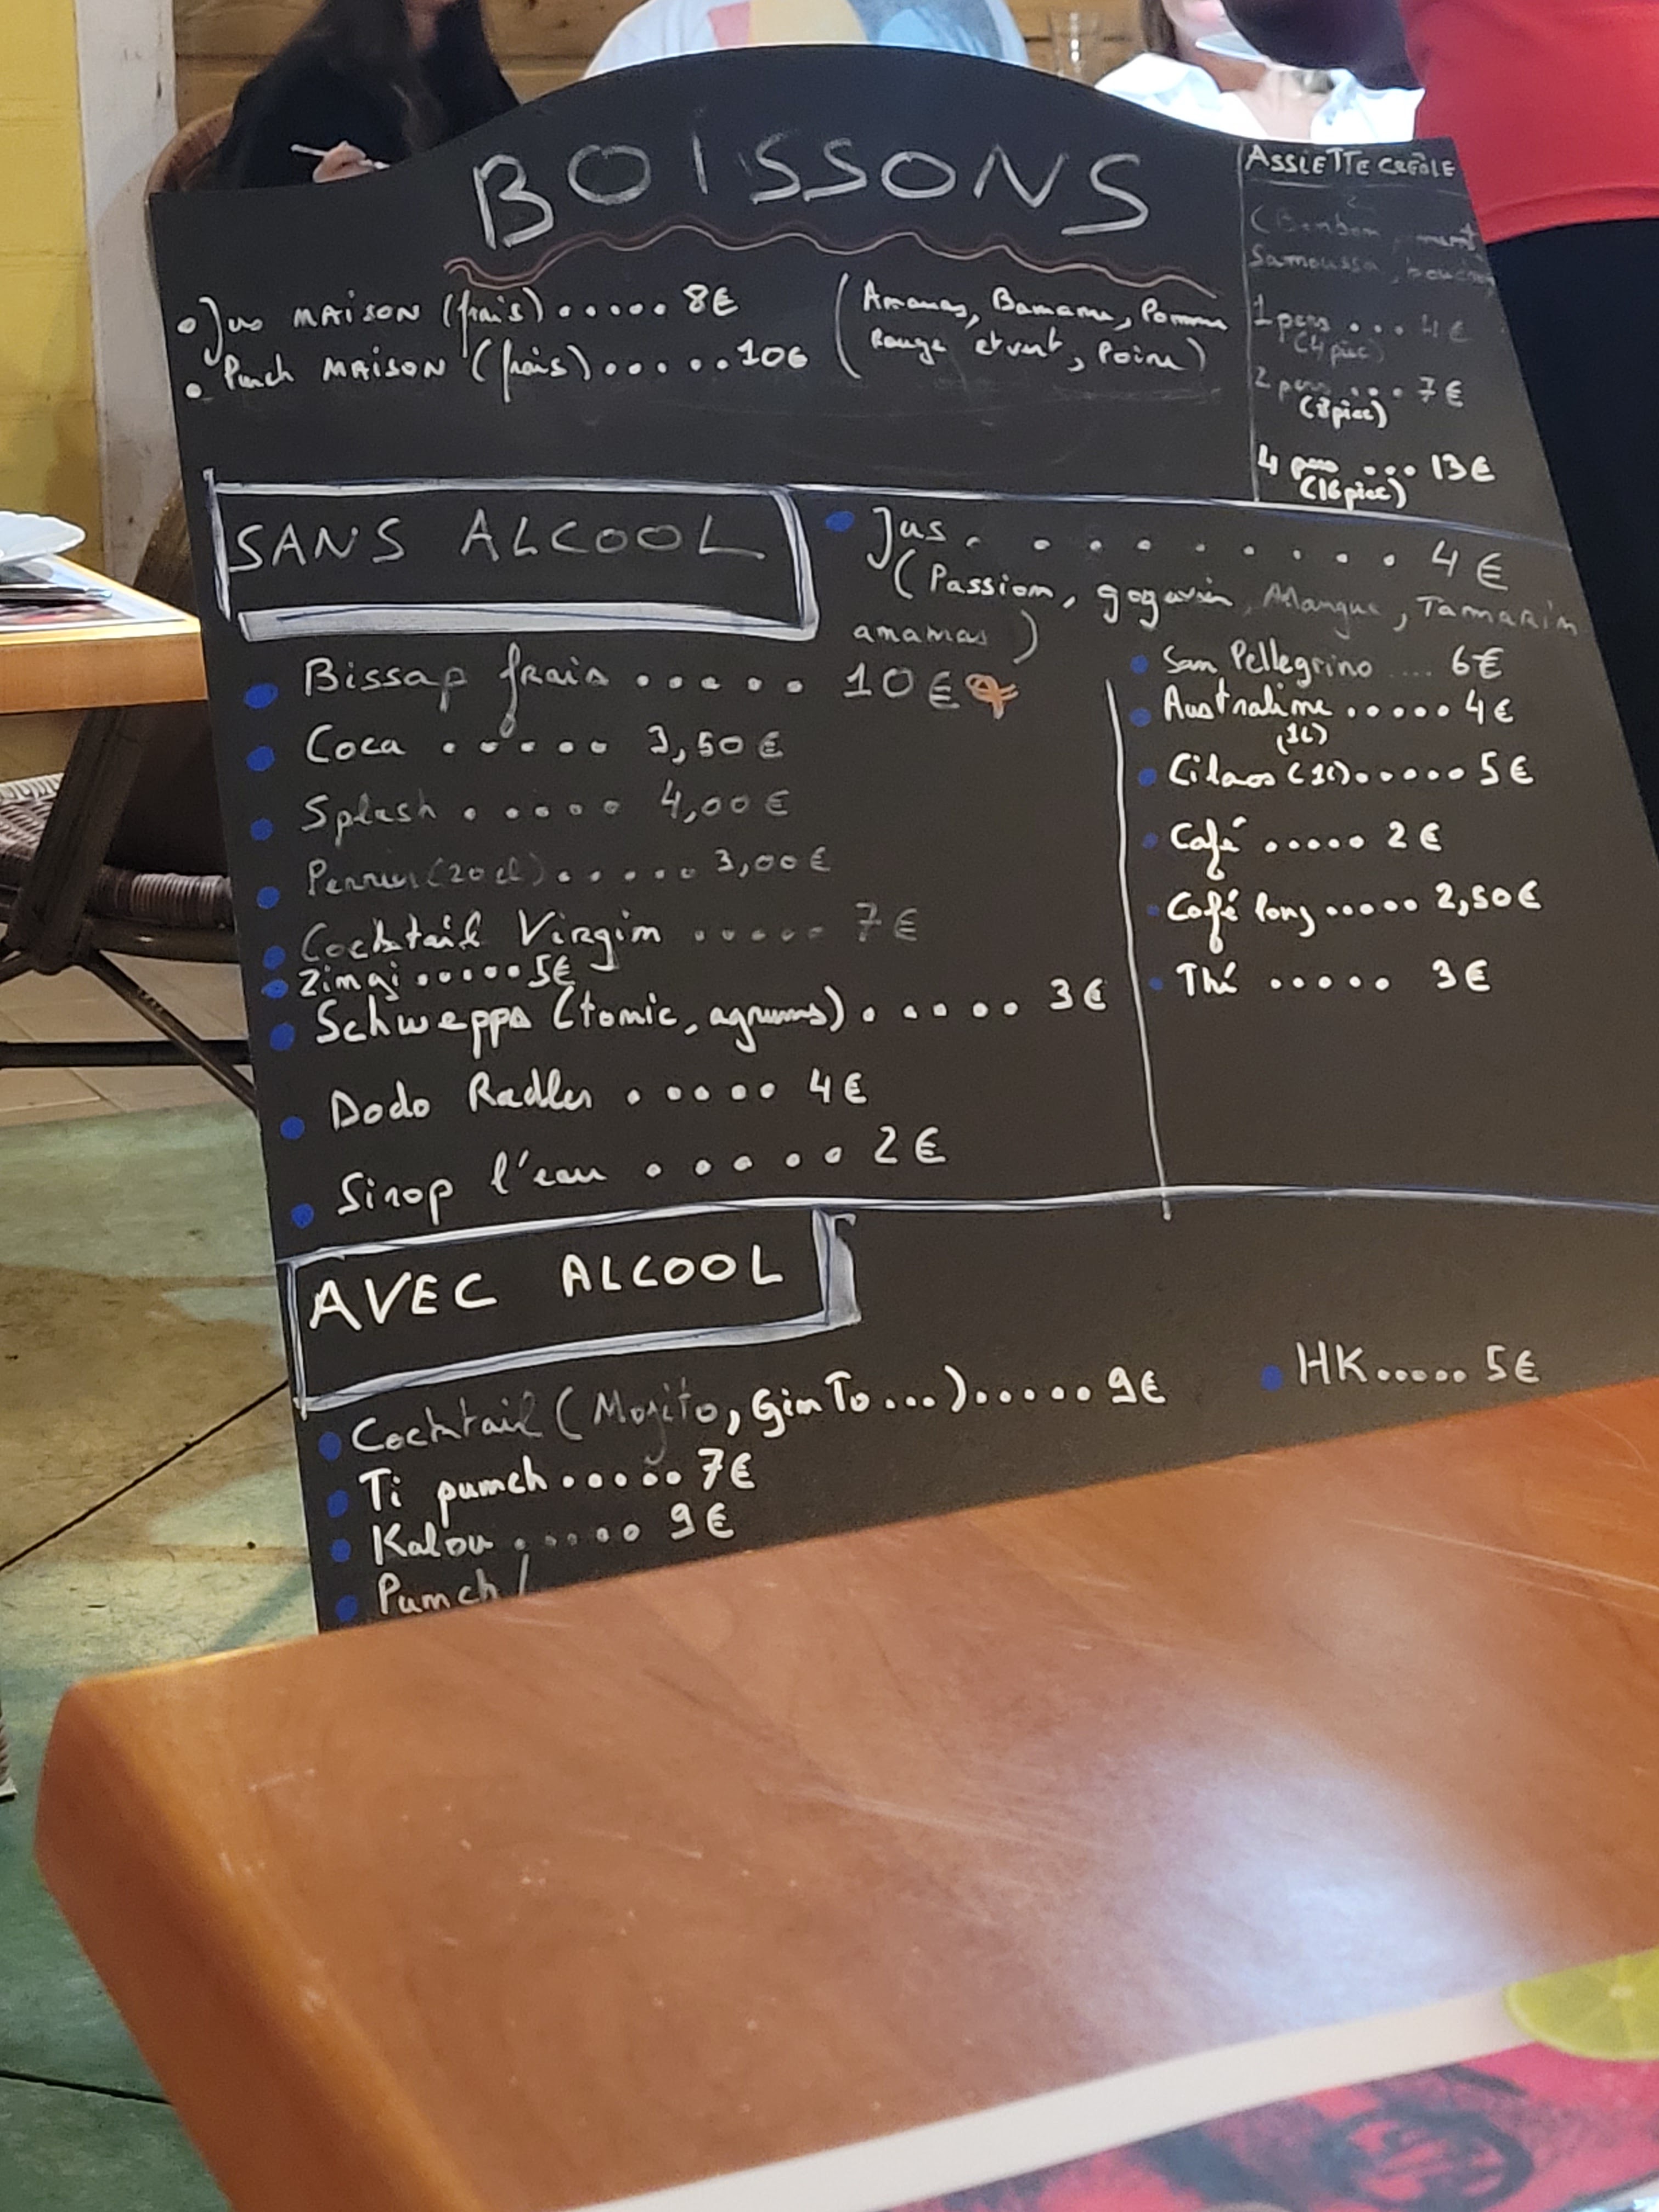 BOISSONS
• Jus MAISON (frais) ..... 8€
• Punch MAISON (frais) ..... 10€
(Ananas, Banane, Pomme
Rouge et vert, Poire)
ASSIETTE CRÉOLE
(Bonbon piment
Samoussa, bouchon
1 pers ... 4€
(4 piec)
2 pers .... 7€
(8 piec)
4 pers ... 13€
(16 piec)
SANS ALCOOL
• Jus . . . . . . . . . 4€
(Passion, gogavier, Mangue, Tamarin
ananas)
• Bissap frais ..... 10€
• Coca ..... 3,50€
• Splash ..... 4,00€
• Perrier (20cl) ..... 3,00€
• Cocktail Virgin ..... 7€
• Zingi ..... 5€
• Schwepps (tonic, agrums) ..... 3€
• Dodo Radler ..... 4€
• Sirop l'eau ..... 2€
• San Pellegrino .... 6€
• Australine ..... 4€
(1L)
• Cilaos (1L) ..... 5€
• Café ..... 2€
• Café long ..... 2,50€
• Thé ..... 3€
AVEC ALCOOL
• Cocktail (Mojito, Gin To...) ..... 9€
• Ti punch ..... 7€
• Kalou ..... 9€
• Punch /
• HK ..... 5€